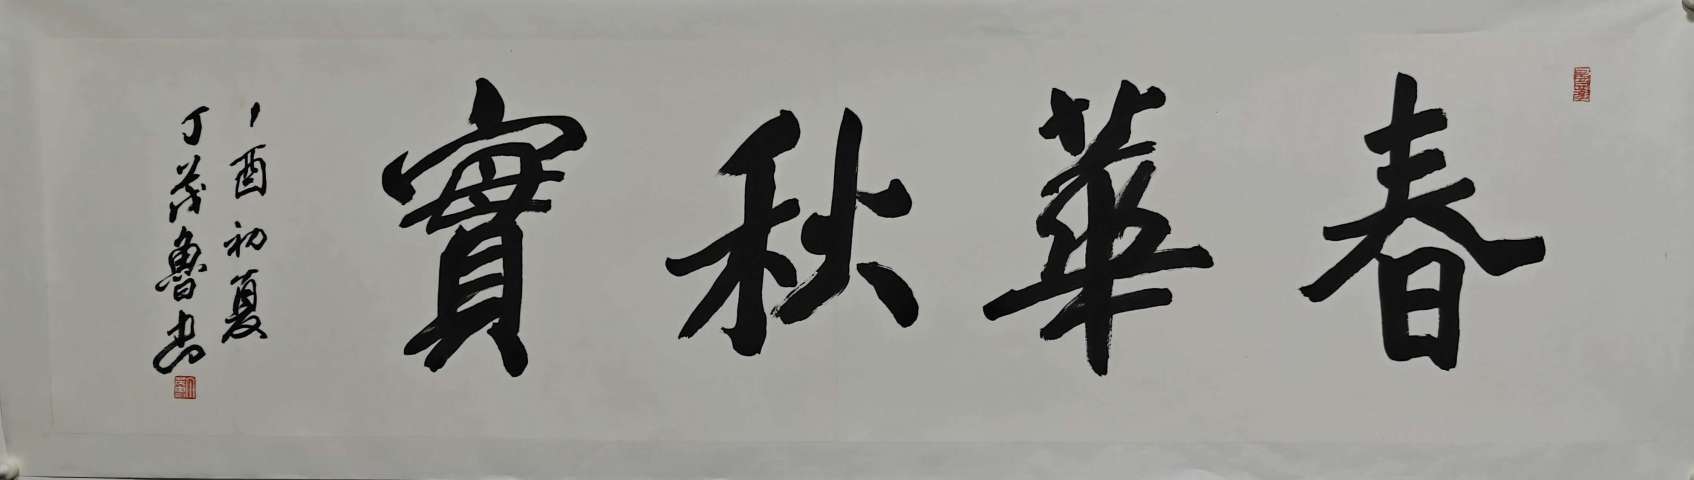 春華秋實
丁酉初夏
丁茂魯書